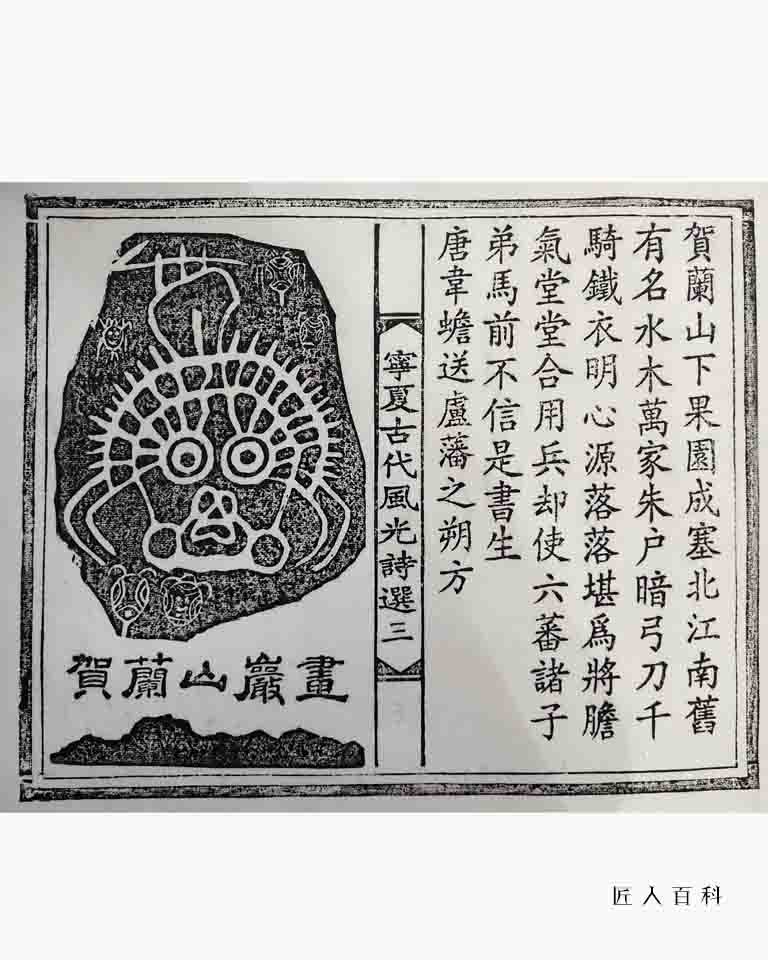 賀蘭山下果園成塞北江南舊
有名水木萬家朱户暗弓刀千
騎鐵衣明心源落落堪爲將膽
氣堂堂合用兵却使六蕃諸子
弟馬前不信是書生
唐韋蟾送盧藩之朔方
寧夏古代風光詩選三
賀蘭山巖畫
匠人百科